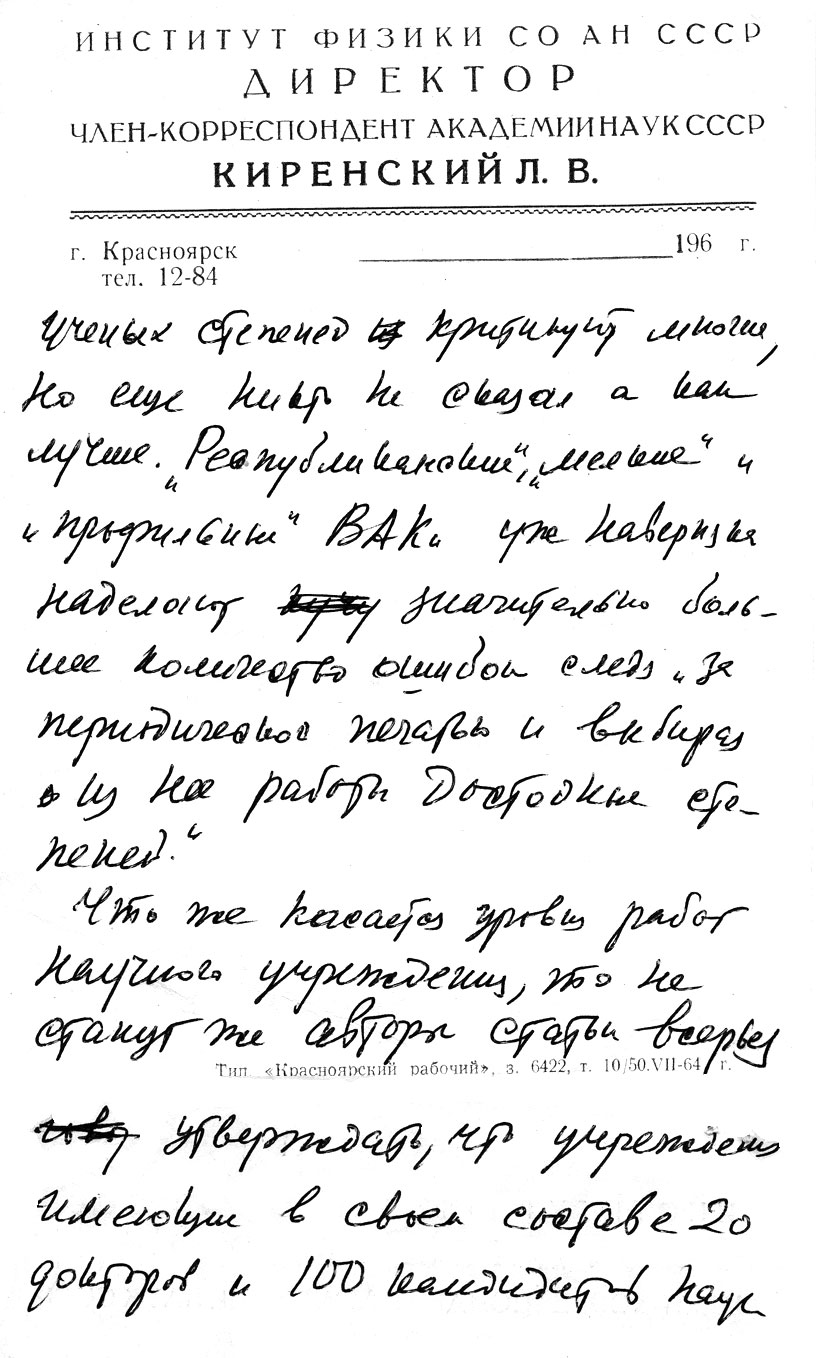 ИНСТИТУТ ФИЗИКИ СО АН СССР
ДИРЕКТОР
ЧЛЕН-КОРРЕСПОНДЕНТ АКАДЕМИИ НАУК СССР
КИРЕНСКИЙ Л. В.
г. Красноярск 196 г.
тел. 12-84
ученых степеней критикуют многие,
но еще никто не сказал а как
лучше. „Республиканские“, „мелкие“ и
„профильные“ ВАКи уже наверняка
наделают значительно боль-
шее количество ошибок следя „за
периодической печатью и выбирая
из нее работы достойные сте-
пеней.“
Что же касается уровня работ
научного учреждения, то не
станут же авторы статьи всерьез
Тип. «Красноярский рабочий», з. 6422, т. 10/50.VII-64 г.
утверждать, что учреждения
имеющие в своем составе 20
докторов и 100 кандидатов наук